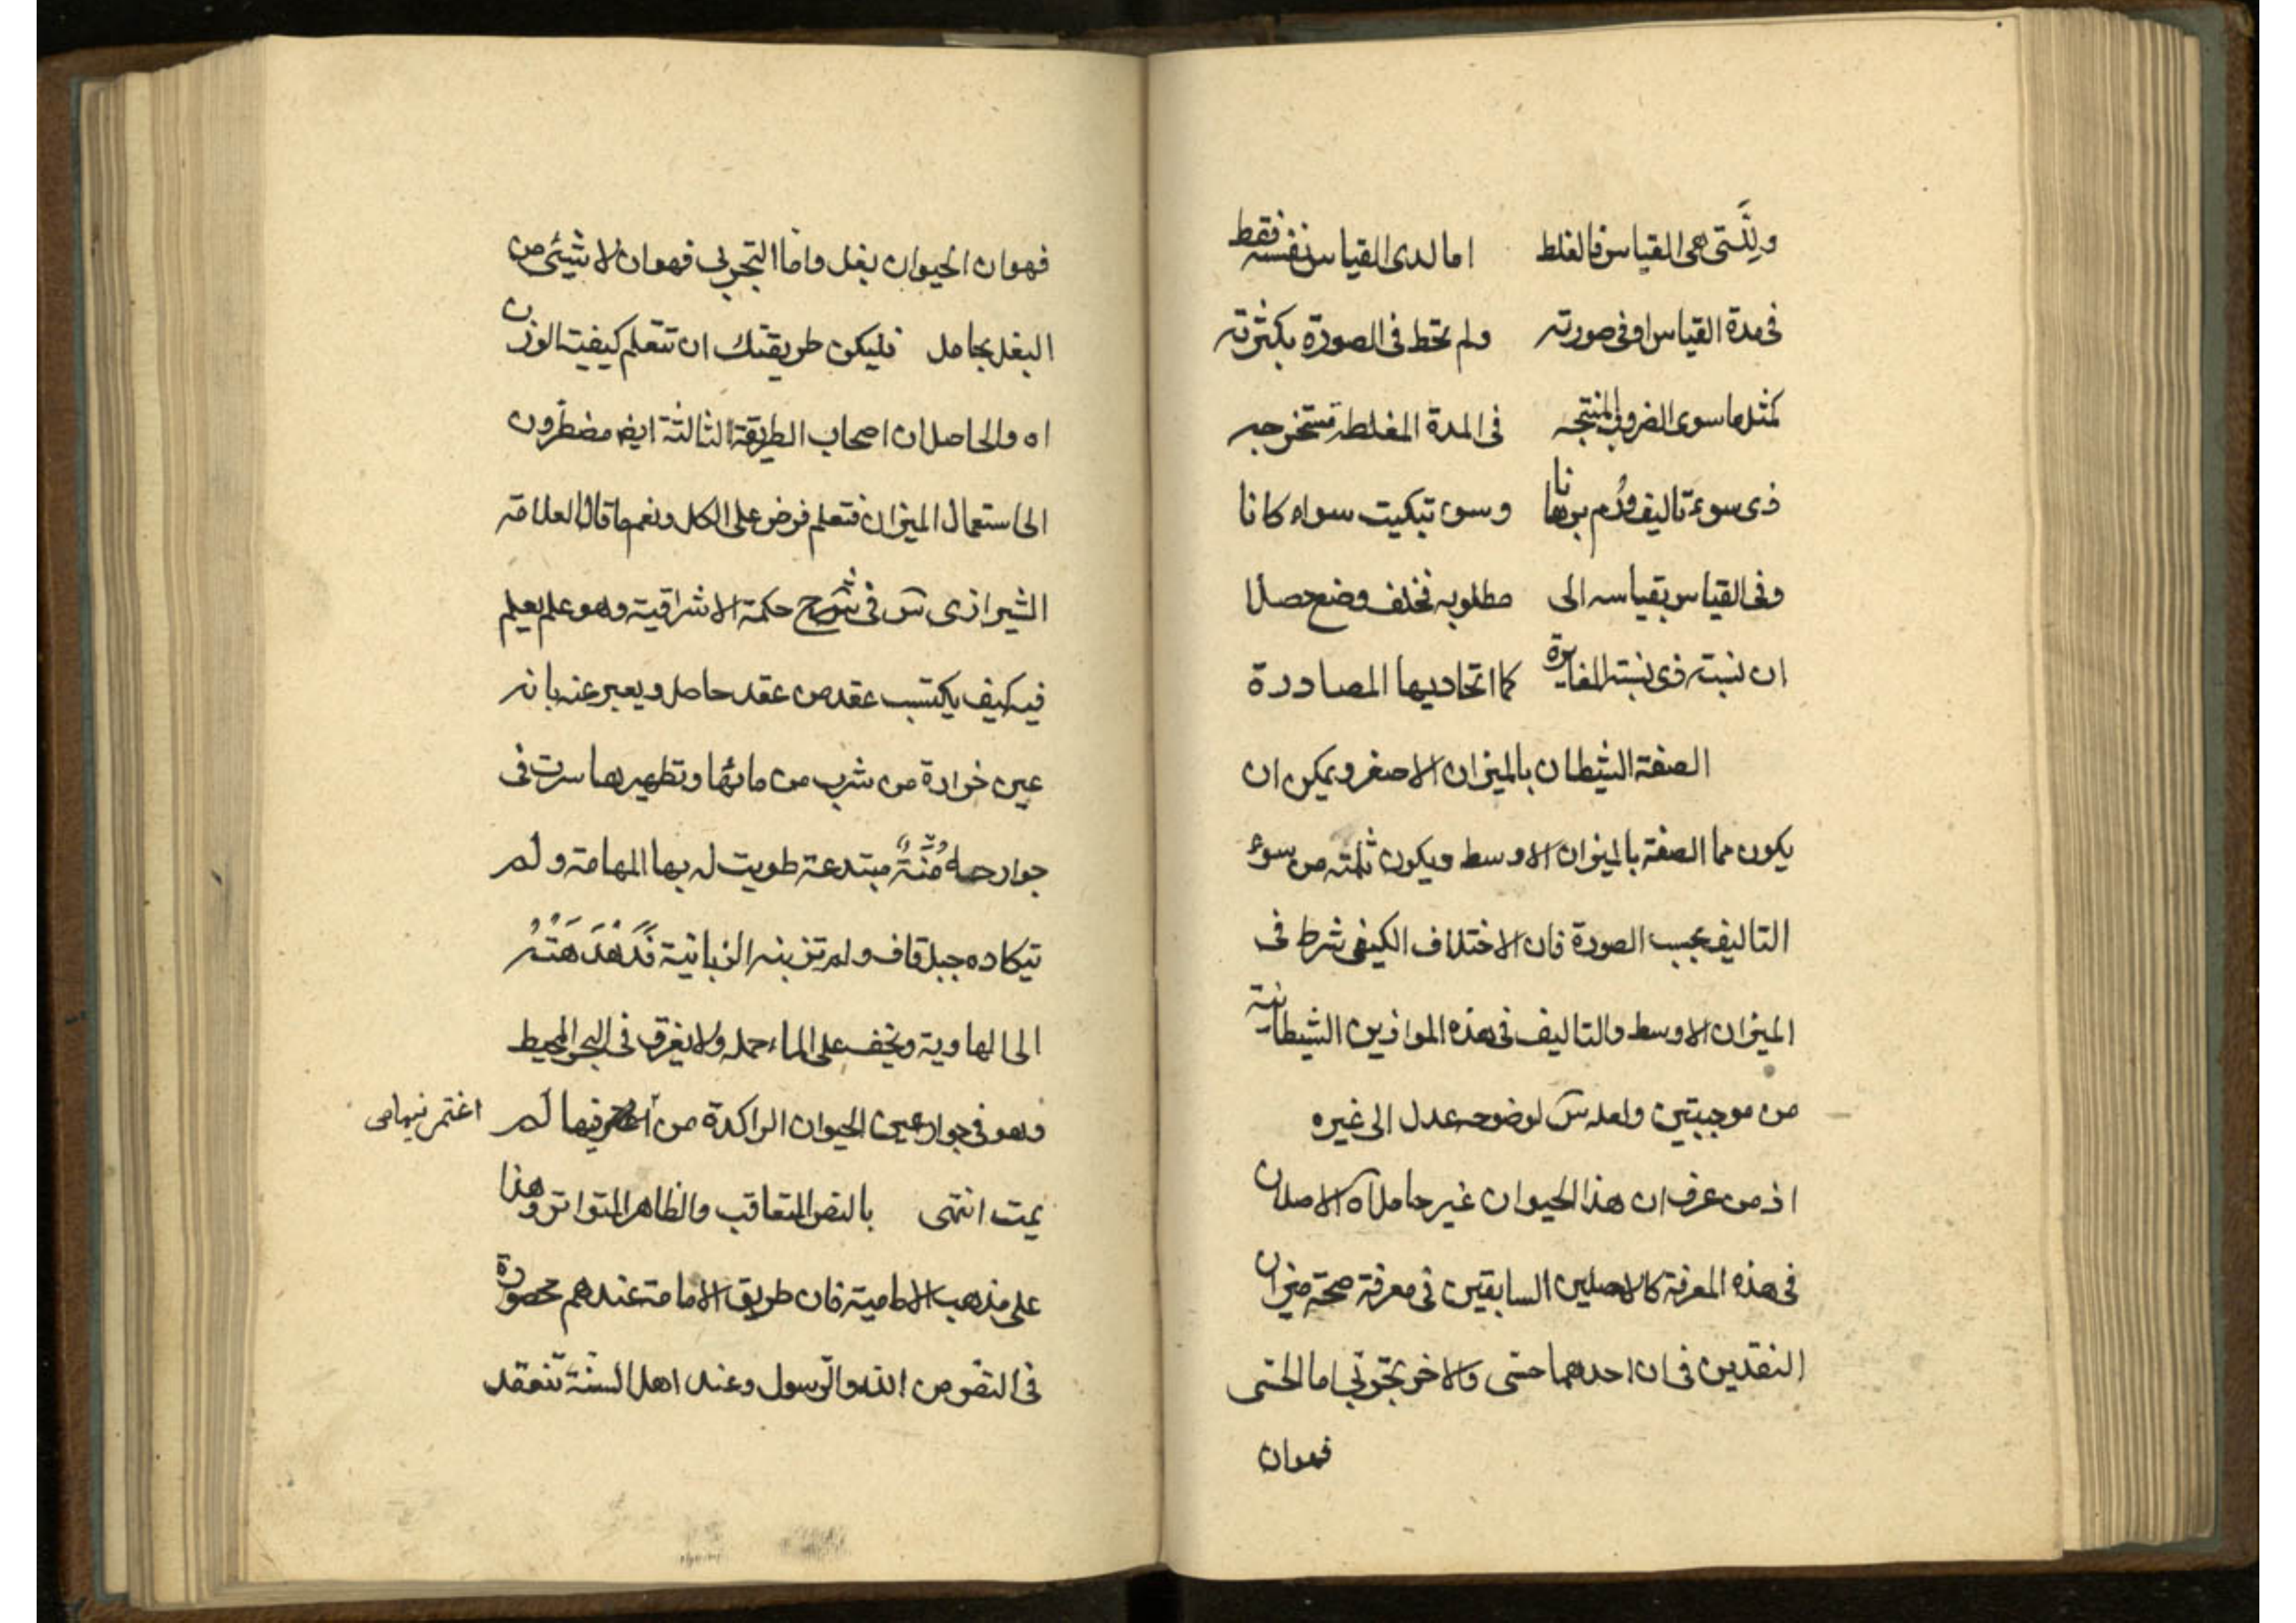 ولنستى هى القياس فالغلط اما لدى القياس نفسه فقط
فى مدة القياس او فى صورته ولم تحط فى الصورة بكثرته
كمثل ما سوى الضروب المنتجه فى المدة المغلطة مستخرجه
ذى سوء تاليف ودم برهانا وسوء تبكيت سواء كانا
وفى القياس بقياسه الى مطلوبه فخلف وضع حصلا
ان نسبته ذى نسبته المغايرة كما اتحاديها المصادرة
الصفة الشيطان بالميزان الاصغر ويمكن ان
يكون مما الصفة بالميزان الاوسط ويكون ثلمته من سوء
التاليف بحسب الصورة فان الاختلاف الكيفى شرط فى
الميزان الاوسط والتاليف فى هذه الموازين الشيطانية
من موجبتين ولعله س لوضوحه عدل الى غيره
اذ من عرف ان هذا الحيوان غير حامل اه الاصلان
فى هذه المعرفة كالاصلين السابقين فى معرفة صحة ميزان
النقدين فى ان احدهما حسى والاخر تجربى اما الحسى
فهوان
فهوان الحيوان بغل واما التجربى فهوان لا شيئى من
البغل بحامل فليكن طريقتك ان تتعلم كيفيت الوزن
اه والحاصل ان اصحاب الطريقة الثالثة ايض مضطرون
الى استعمال الميزان فتعلم فرض على الكل ونعم ما قال العلامة
الشيرازى س فى شرح حكمة الاشراقية وهو علم يعلم
فيه كيف يكتسب عقد من عقد حاصل ويعبر عنه بانه
عين خوارة من شرب من مائها وتطهير بها سرت فى
جوارحه مُنَّةٌ مبتدعة طويت له بها المهامة ولم
تيكاده جبل قاف ولم تزبنه الزبانية فدهدهته
الى الهاوية ويخف على الماء حمله ولا يغرق فى البحر المحيط
وهو فى جوار عين الحيوان الراكدة من فيها لم
اغتمر فيها مى
يمت انتهى بالنص المتعاقب والظاهر المتواتر وهذا
على مذهب الامامية فان طريق الامامة عندهم محصورة
فى النص من الله والرسول وعند اهل السنة تنعقد